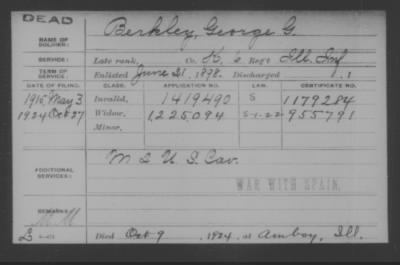 DEAD
NAME OF SOLDIER: Berkley, George G.
SERVICE: Late rank, Co. K, 2 Reg't Ill. Inf
TERM OF SERVICE: Enlisted June 21, 1898. Discharged , 1
DATE OF FILING. CLASS. APPLICATION NO. LAW. CERTIFICATE NO.
1915 May 3 Invalid, 1419490 S 1179284
1924 Oct 27 Widow, 1225094 5-1-22- 955791
Minor,
ADDITIONAL SERVICES: M S U.S. Cav.
WAR WITH SPAIN.
REMARKS:
Died Oct 9, 1924, at Amboy, Ill.